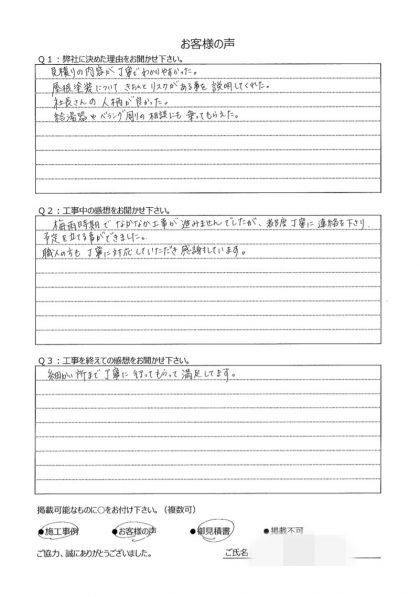 お客様の声
Q1：弊社に決めた理由をお聞かせ下さい。
見積りの内容が丁寧でわかりやすかった。
屋根塗装について きちんとリスクがある事を説明してくれた。
社長さんの人柄が良かった。
給湯器やベランダ周りの相談にも乗ってもらえた。
Q2：工事中の感想をお聞かせ下さい。
梅雨時期でなかなか工事が進みませんでしたが、都度丁寧に連絡を下さり、
予定を立てる事ができました。
職人の方も丁寧に対応していただき感謝しています。
Q3：工事を終えての感想をお聞かせ下さい。
細かい所まで丁寧に行ってもらって満足してます。
掲載可能なものに○をお付け下さい。（複数可）
●施工事例 ●お客様の声 ●御見積書 ●掲載不可
ご協力、誠にありがとうございました。 ご氏名